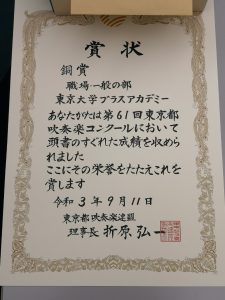 賞状
銅賞
職場・一般の部
東京大学ブラスアカデミー
あなたがたは第61回東京都
吹奏楽コンクールにおいて
頭書のすぐれた成績を収めら
れました
ここにその栄誉をたたえこれを
賞します
令和3年9月11日
東京都吹奏楽連盟
理事長 折原弘一